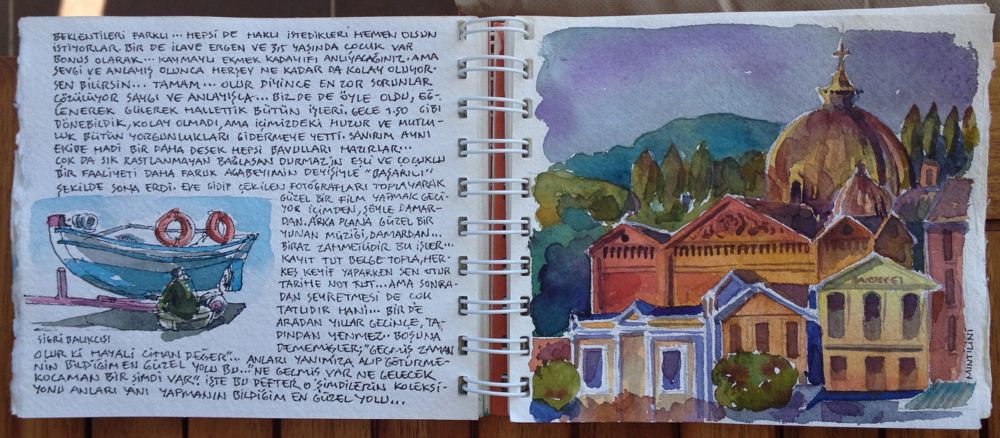 BEKLENTİLERİ FARKLI... HEPSİ DE HAKLI İSTEDİKLERİ HEMEN OLSUN
İSTİYORLAR. BİR DE İLAVE ERGEN VE 3,5 YAŞINDA ÇOCUK VAR
BONUS OLARAK... KAYMAKLI EKMEK KADAYIFI ANLIYACAĞINIZ. AMA
SEVGİ VE ANLAYIŞ OLUNCA HERŞEY NE KADAR DA KOLAY OLUYOR.
SEN BİLİRSİN... TAMAM... OLUR DİYİNCE EN ZOR SORUNLAR
ÇÖZÜLÜYOR SAYGI VE ANLAYIŞLA... BİZDE DE ÖYLE OLDU, EĞ-
LENEREK GÜLEREK HALLETTİK BÜTÜN İŞLERİ. GECE 1.50 GİBİ
DÖNEBİLDİK, KOLAY OLMADI, AMA İÇİMİZDEKİ HUZUR VE MUTLU-
LUK BÜTÜN YORGUNLUKLARI GİDERMEYE YETTİ. SANIRIM AYNI
EKİBE HADİ BİR DAHA DESEK HEPSİ BAVULLARI HAZIRLAR...
ÇOK DA SIK RASTLANMAYAN BAĞLAŞAN DURMAZ'IN EŞLİ VE ÇOCUKLU
BİR FAALİYETİ DAHA FARUK AĞABEYİMİN DEYİŞİYLE "BAŞARILI"
ŞEKİLDE SONA ERDİ. EVE GİDİP ÇEKİLEN FOTOĞRAFLARI TOPLAYARAK
GÜZEL BİR FİLM YAPMAK GEÇİ-
YOR İÇİMDEN, ŞÖYLE DAMAR-
DAN. ARKA PLANA GÜZEL BİR
YUNAN MÜZİĞİ, DAMARDAN...
BİRAZ ZAHMETLİDİR BU İŞLER...
KAYIT TUT BELGE TOPLA, HER-
KES KEYİF YAPARKEN SEN OTUR
TARİHE NOT TUT... AMA SONRA-
DAN SEYRETMESİ DE ÇOK
TATLIDIR HANİ... BİR DE
ARADAN YILLAR GEÇİNCE, TA-
DINDAN YENMEZ. BOŞUNA
DEMEMİŞLER; "GEÇMİŞ ZAMAN
SİĞRİ BALIKÇISI
OLUR Kİ HAYALİ CİHAN DEĞER"... ANLARI YANIMIZA ALIP GÖTÜRME-
NİN BİLDİĞİM EN GÜZEL YOLU BU... "NE GEÇMİŞ VAR NE GELECEK
KOCAMAN BİR ŞİMDİ VAR" İŞTE BU DEFTER O ŞİMDİLERİN KOLEKSİ-
YONU ANLARI YANI YAPMANIN BİLDİĞİM EN GÜZEL YOLU...
MİNTİLİNİ